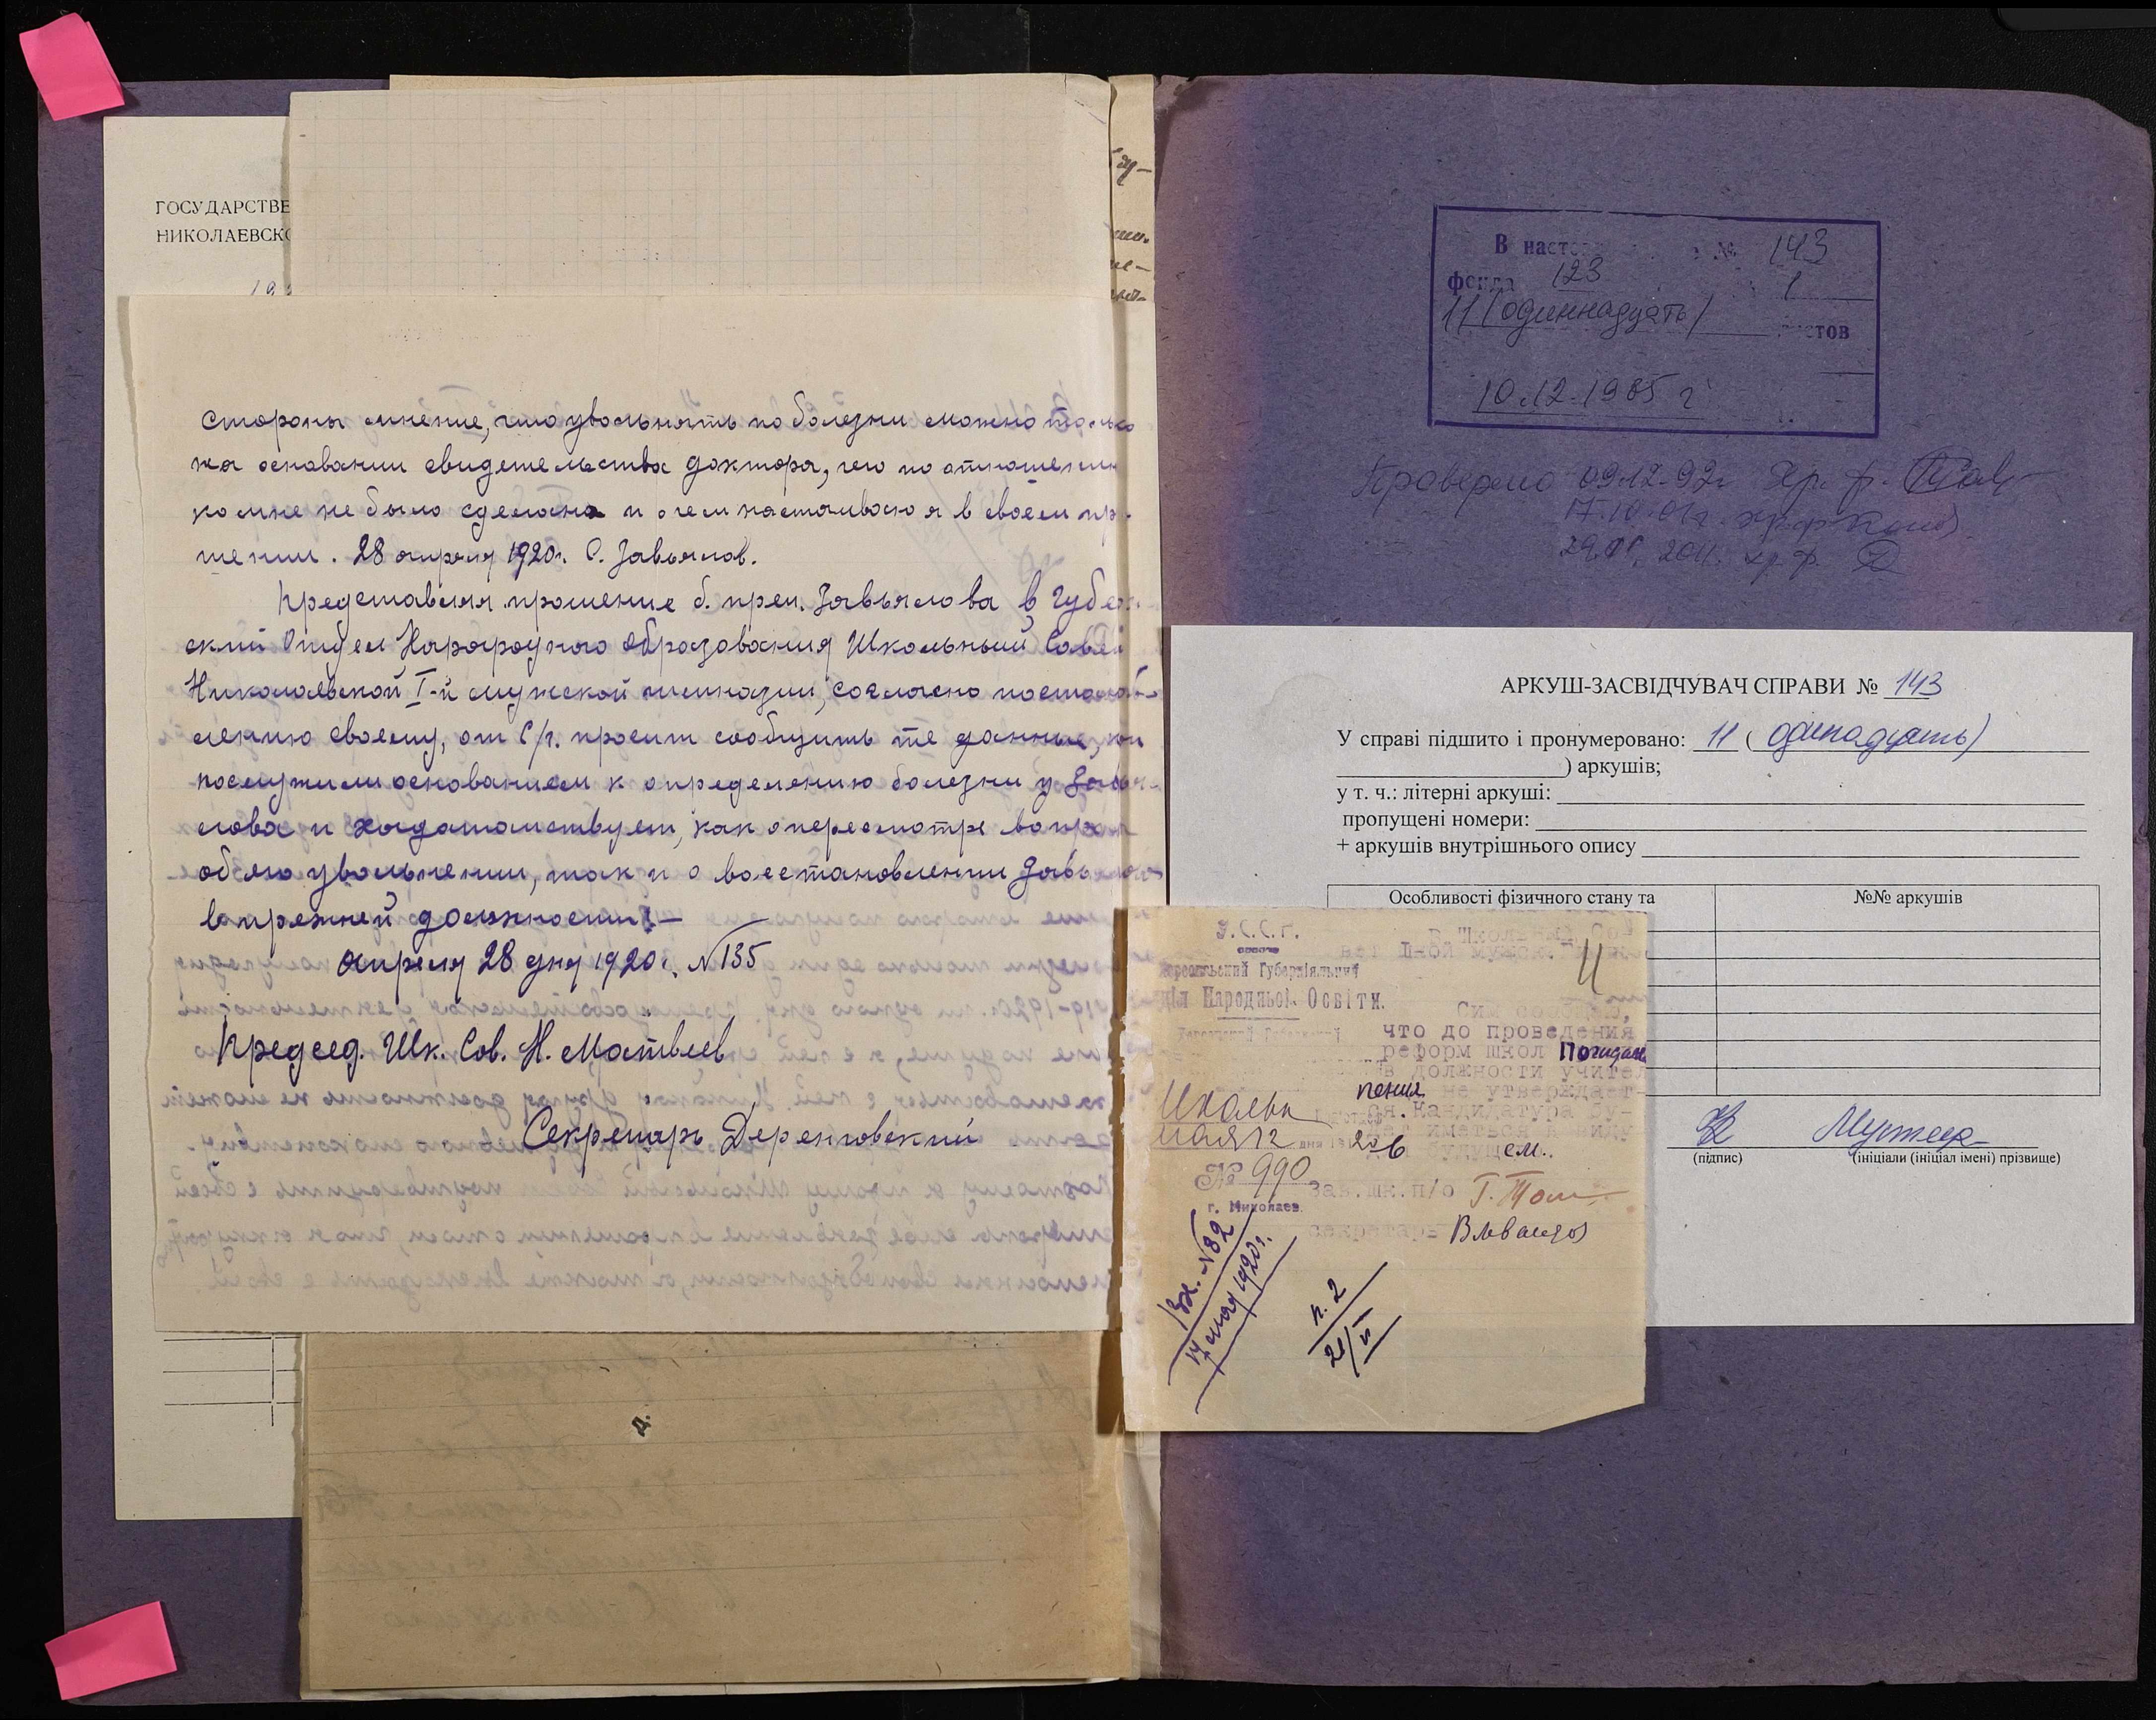 ГОСУДАРСТВЕ
НИКОЛАЕВСКО
стороны мнение, что увольнять по болезни можно только
на основании свидетельства доктора, чего по отношению
ко мне не было сделано и о чем настаиваю я в своем пр
шении. 28 апреля 1920г. С. Завьялов.
Представляя прошение б. преп. Завьялова в Губерн
ский Отдел Народного Образования Школьный Совет
Николаевской I-й мужской гимназии, согласно постанов-
лению своему, от С/г. просит сообщить те данные, кои
послужили основанием к определению болезни у Завья-
лова и ходатайствует, как о пересмотре вопроса
об его увольнении, так и о восстановлении Завьялова
в прежней должности.—
Апреля 28 дня 1920г. №135
Председ. Шк. Сов. Н. Матвеев
Секретарь Деренговский
В наст № 143
фонда 123 1
11 (одиннадцать) листов
10.12.1985 г
Проверено 09.12.92г. хр. ф.
17.10.01г. хр.ф
2011. хр. ф.
АРКУШ-ЗАСВІДЧУВАЧ СПРАВИ № 143
У справі підшито і пронумеровано: 11 (одинадцять)
) аркушів;
у т. ч.: літерні аркуші:
пропущені номери:
+ аркушів внутрішнього опису
Особливості фізичного стану та
№№ аркушів
(підпис)
(ініціали (ініціал імені) прізвище)
У.С.С.Р.
Херсонський Губерніяльний
діл Народньої Освіти.
Школьн
мая 12 дня 1920
№ 990
г. Николаев.
11
В Школьный Сов
вет 1-ной мужск.
Сим сообщаю,
что до проведения
реформ школ
в должности учител
пения не утверждает-
ся. Кандидатура бу-
дет иметься в виду
в будущем.
Зав. шк. п/о
секретарь
Вх. №82
17 мая 1920г.
п. 2